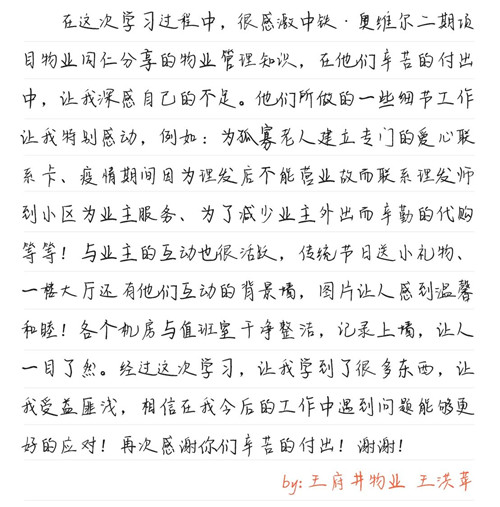 在这次学习过程中，很感激中铁·奥维尔二期项
目物业同仁分享的物业管理知识，在他们辛苦的付出
中，让我深感自己的不足。他们所做的一些细节工作
让我特别感动，例如：为孤寡老人建立专门的爱心联
系卡、疫情期间因为理发店不能营业故而联系理发师
到小区为业主服务、为了减少业主外出而辛勤的代购
等等！与业主的互动也很活跃，传统节日送小礼物、
一楼大厅还有他们互动的背景墙，图片让人感到温馨
和睦！各个机房与值班室干净整洁，记录上墙，让人
一目了然。经过这次学习，让我学到了很多东西，让
我受益匪浅，相信在我今后的工作中遇到问题能够更
好的应对！再次感谢你们辛苦的付出！谢谢！
by:王府井物业 王洪苹